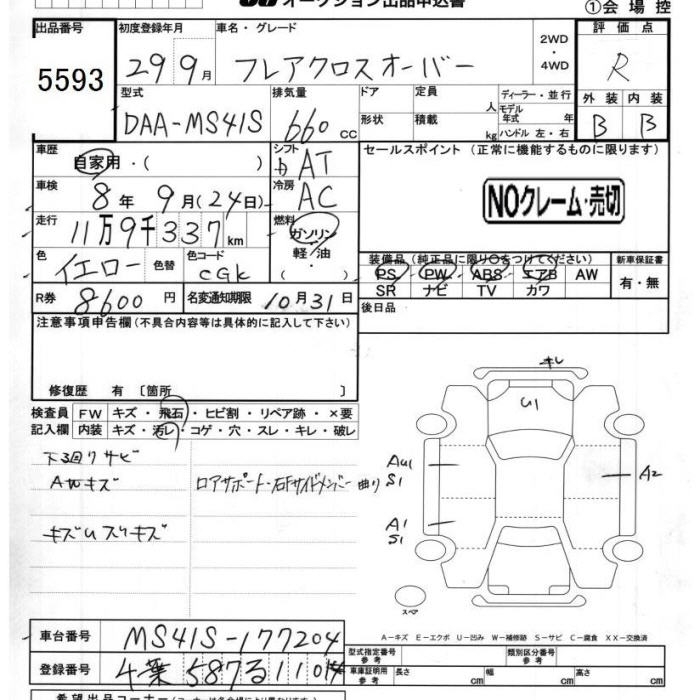 オークション出品申込書 ①会場控
出品番号 初度登録年月 車名・グレード 2WD・4WD 評価点
5593 29 9月 フレアクロスオーバー R
型式 排気量 ドア 定員 人 ディーラー・並行 外装 内装
DAA-MS41S 660cc 形状 積載 kg モデル年式 年式 ハンドル 左・右 B B
車歴 自家用・( ) シフト AT セールスポイント (正常に機能するものに限ります)
車検 8年 9月(24日) 冷房 AC NOクレーム・売切
走行 11万9千337km 燃料 ガソリン・軽油
色 イエロー 色替 色コード CGK 装備品(純正品に限り○をつけてください) 新車保証書
PS PW ABS エアB AW 有・無
SR ナビ TV カワ
R券 8600円 名変通知期限 10月31日 後日品
注意事項申告欄(不具合内容等は具体的に記入して下さい)
修復歴 有 〔箇所 〕
検査員 FW キズ・飛石・ヒビ割・リペア跡・×要
記入欄 内装 キズ・汚レ・コゲ・穴・スレ・キレ・破レ
キレ
U1
下回りサビ
AWキズ ロアサポート・右Fサイドメンバー曲り
AU1
S1
A2
キズUスリキズ
A1
S1
スペア
A-キズ E-エクボ U-凹み W-補修跡 S-サビ C-腐食 XX-交換済
車台番号 MS41S-177204 型式指定番号 参考 類別区分番号 参考
登録番号 千葉587る1104 車庫証明用 参考 長さ cm 幅 cm 高さ cm
希望出品コーナー